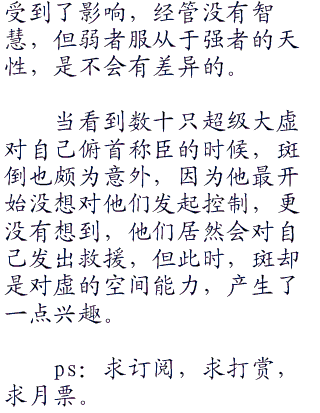 受到了影响，经管没有智
慧，但弱者服从于强者的天
性，是不会有差异的。
当看到数十只超级大虚
对自己俯首称臣的时候，斑
倒也颇为意外，因为他最开
始没想对他们发起控制，更
没有想到，他们居然会对自
己发出救援，但此时，斑却
是对虚的空间能力，产生了
一点兴趣。
ps：求订阅，求打赏，
求月票。